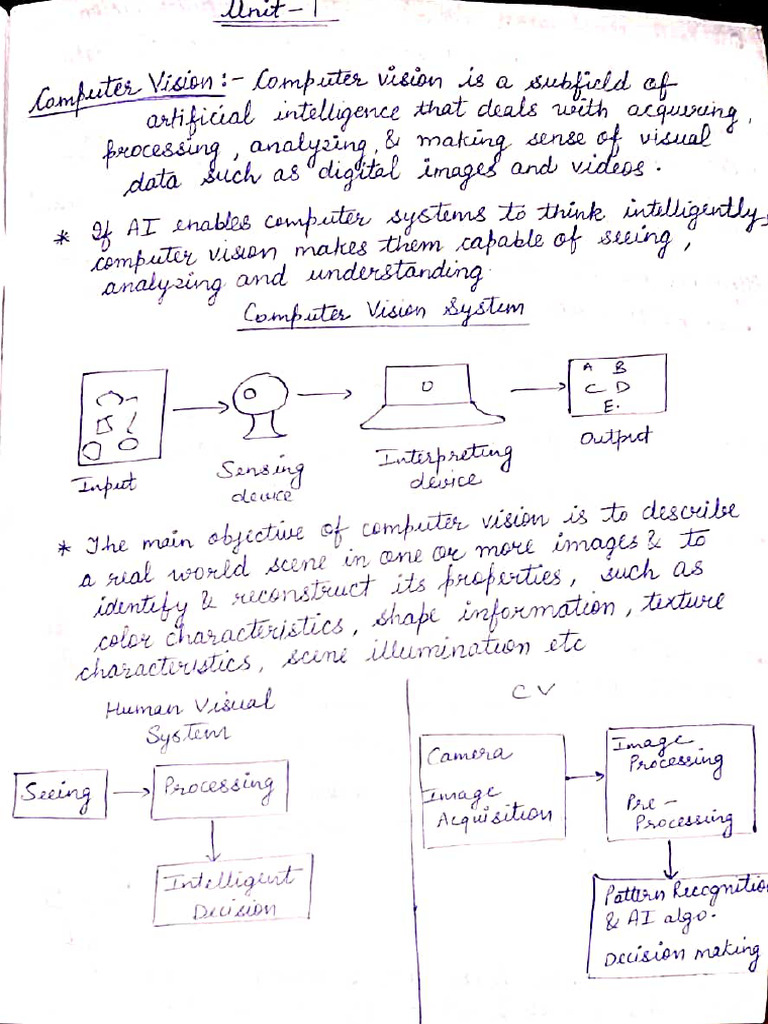 Unit-1
Computer Vision:- Computer vision is a subfield of
artificial intelligence that deals with acquiring,
processing, analyzing, & making sense of visual
data such as digital images and videos.
* If AI enables computer systems to think intelligently,
computer vision makes them capable of seeing,
analyzing and understanding.
Computer Vision System
A B
C D
E.
Input
Sensing
device
Interpreting
device
Output
* The main objective of computer vision is to describe
a real world scene in one or more images & to
identify & reconstruct its properties, such as
color characteristics, shape information, texture
characteristics, scene illumination etc
Human Visual
System
Seeing
Processing
Intelligent
Decision
CV
Camera
Image
Acquisition
Image
Processing
Pre-
Processing
Pattern Recognition
& AI algo.
Decision making